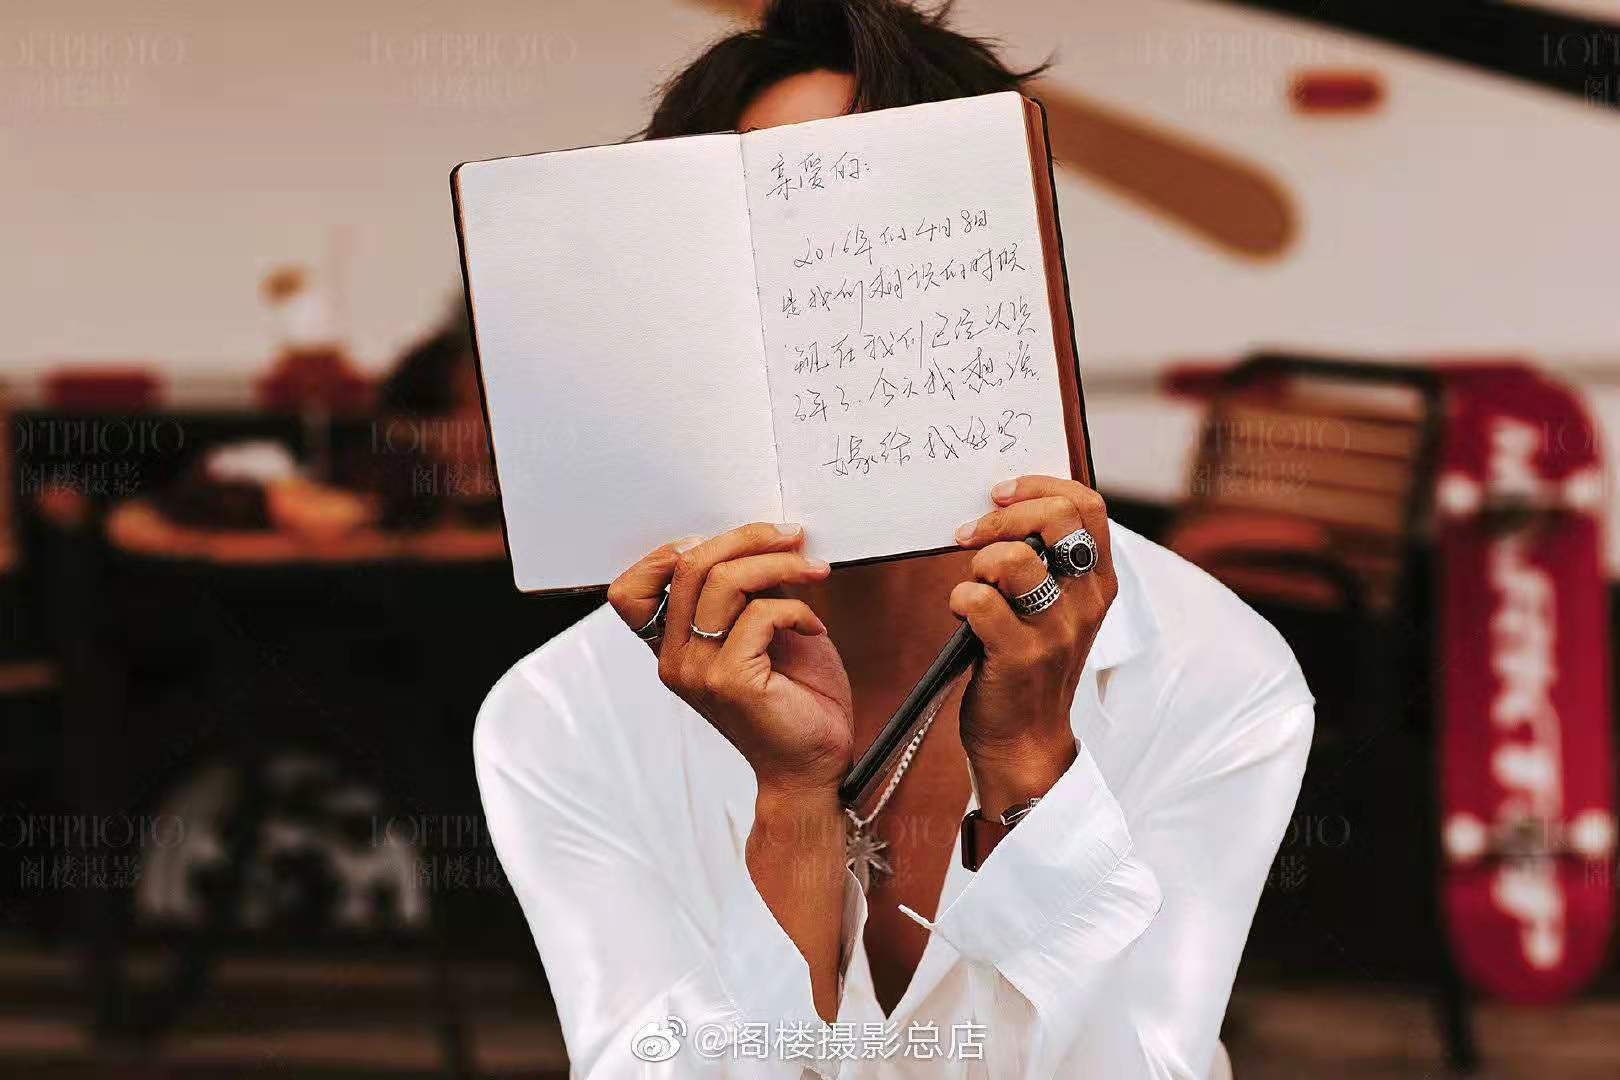 亲爱的:
2016年的4月8日
是我们相识的时候
现在我们已经认识
3年了.今天我想说
嫁给我好吗?
LOFTPHOTO
阁楼摄影
@阁楼摄影总店